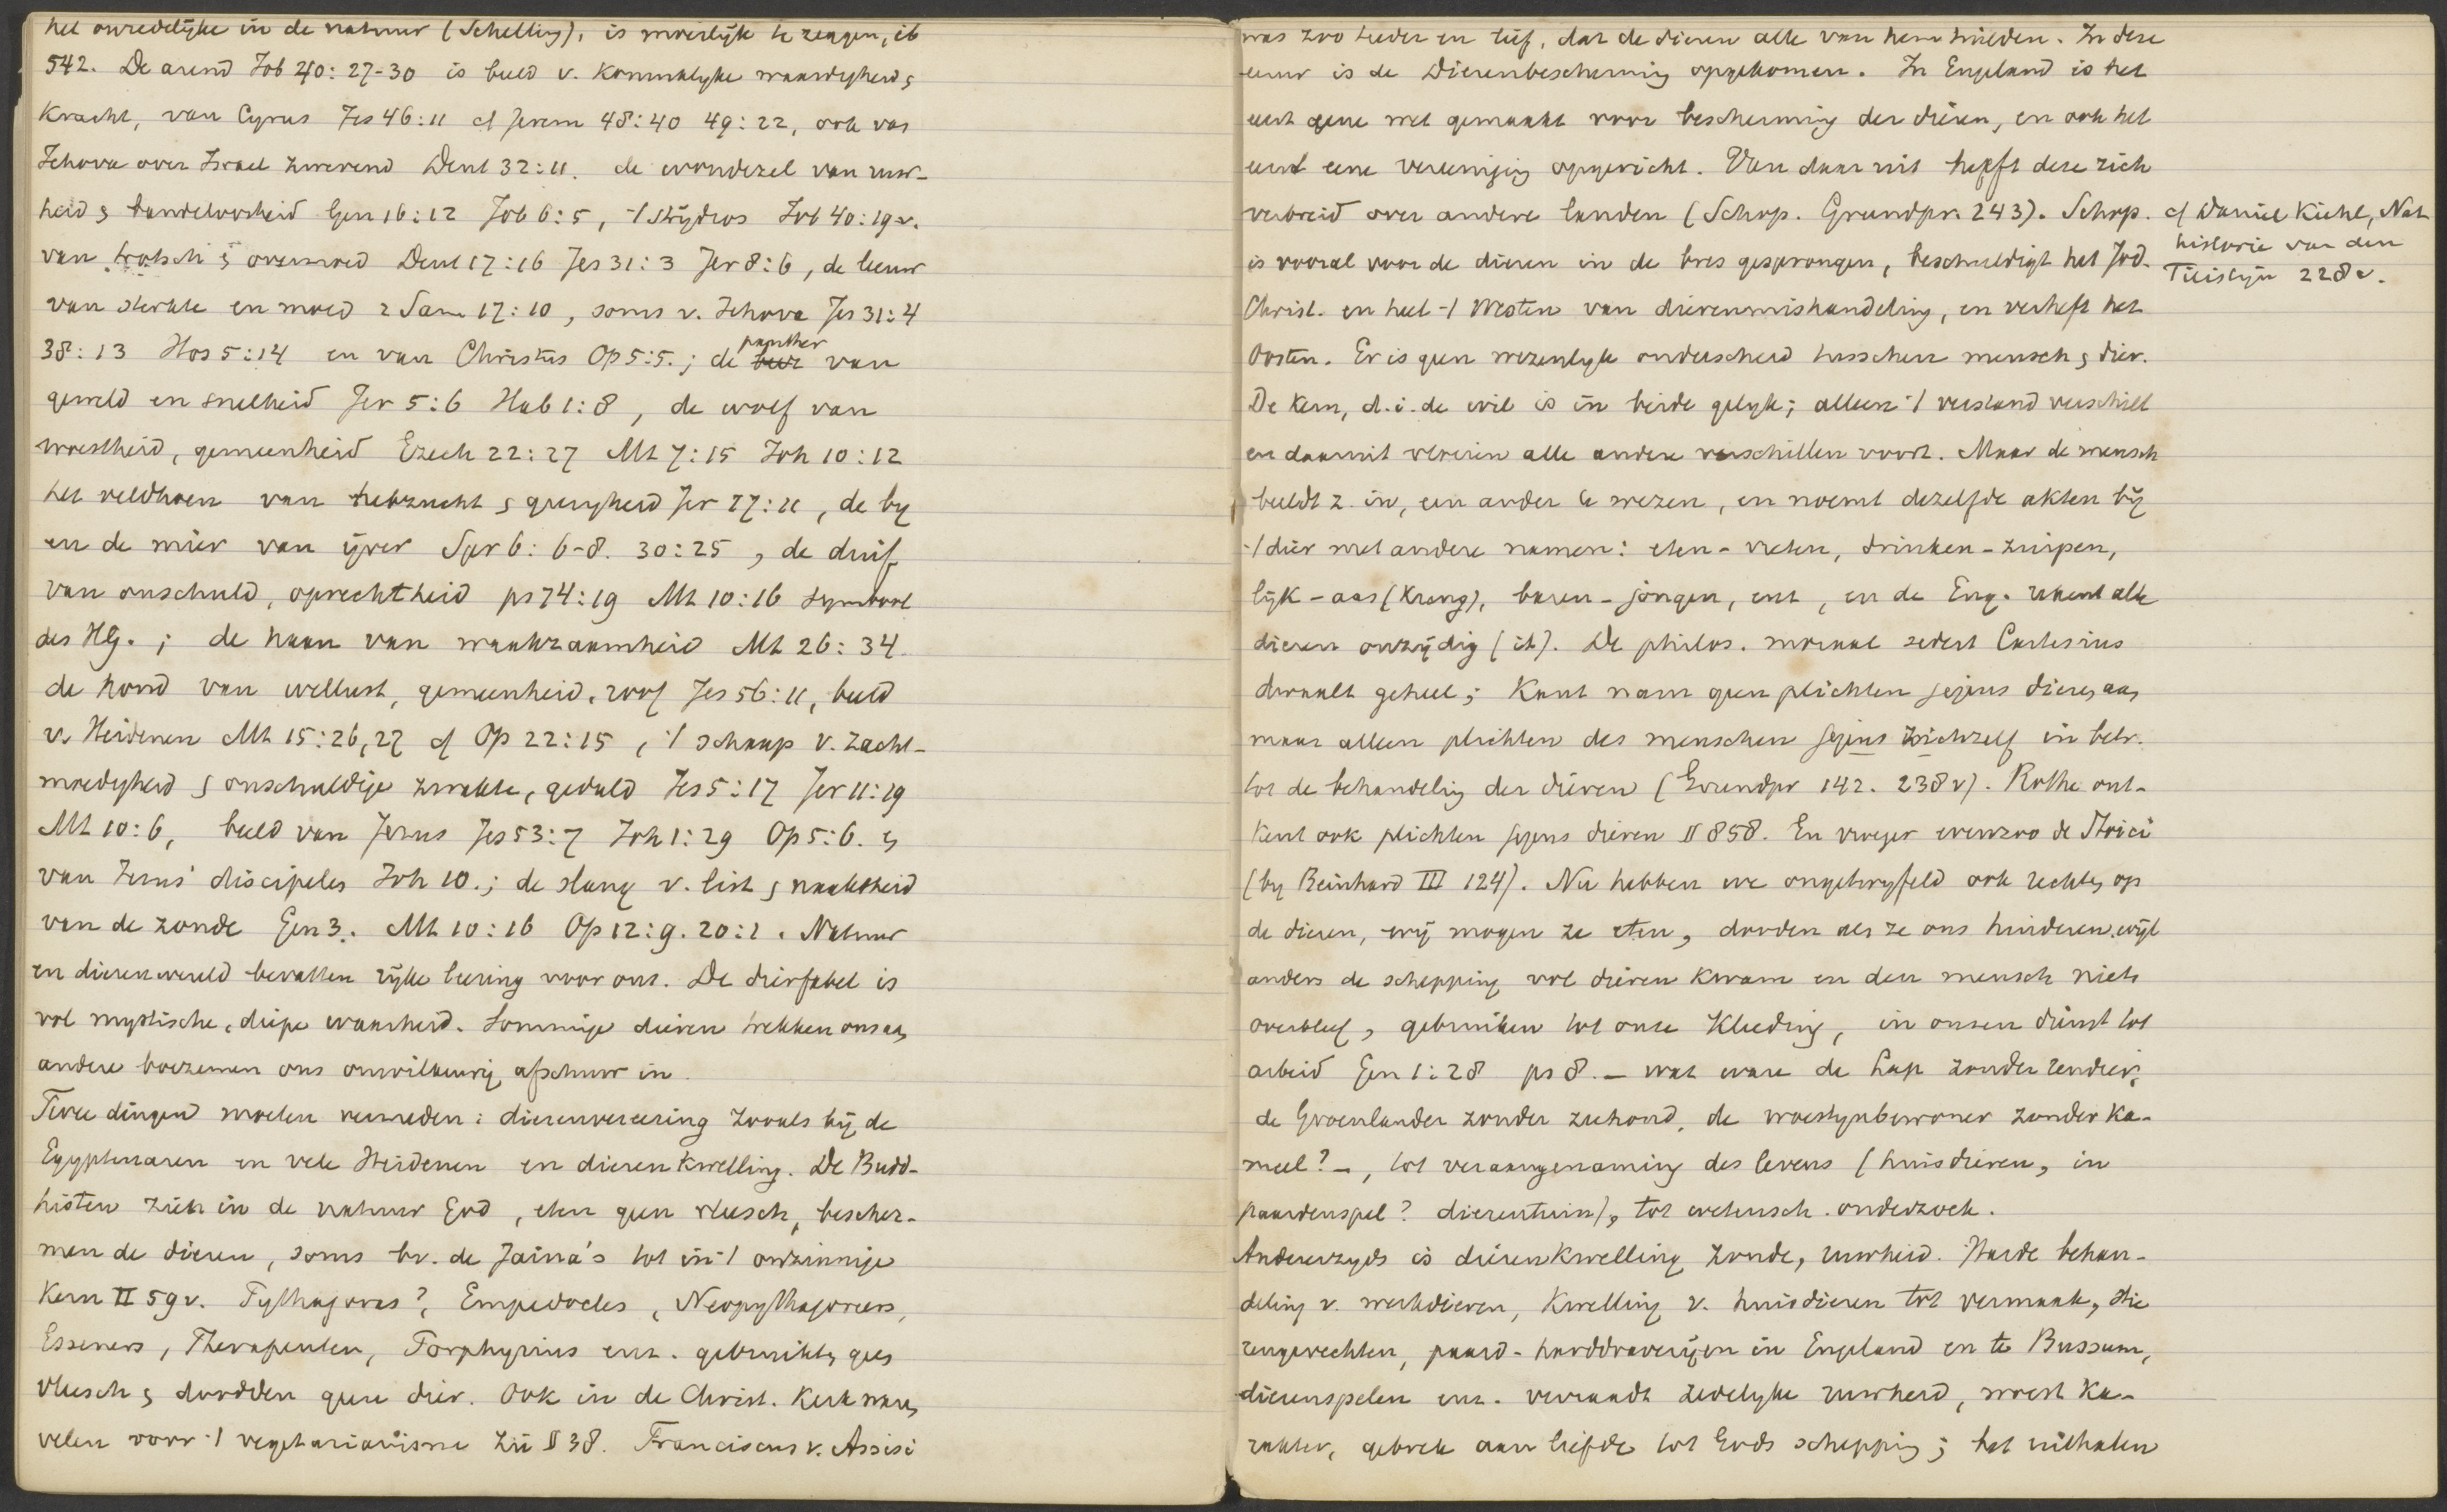 het onredelijke in de natuur (Schelling), is moeilijk te zeggen, ib
542. De arend Job 40:27-30 is beeld v. Koninklyke waardigheid &
Kracht, van Cyrus Jes 46:11 cf Jerem 48:40 49:22, ook van
Jehova over Israel zwevend Deut 32:11. de woudezel van ruw-
heid & bandeloosheid Gen 16:12 Job 6:5, 't Strydros Job 40:19v.
van trotsch & overmoed Deut 17:16 Jes 31:3 Jer 8:6, de leeuw
van sterkte en moed 2 Sam 17:10, soms v. Jehova Jes 31:4
38:13 Hos 5:14 en van Christus Op 5:5.; de panther van
geweld en snelheid Jer 5:6 Hab 1:8, de wolf van
woestheid, gemeenheid Ezech 22:27 Mt 7:15 Joh 10:12
het veldhoen van hebzucht & gierigheid Jer 17:11, de by
en de mier van ijver Spr 6:6-8. 30:25, de duif
van onschuld, oprechtheid ps 74:19 Mt 10:16 symbool
des HG.; de haan van waakzaamheid Mt 26:34
de hond van wellust, gemeenheid, roof Jes 56:11, beeld
v. Heidenen Mt 15:26,27 cf Op 22:15, 't schaap v. zacht-
moedigheid & onschuldige zwakte, geduld Jes 5:17 Jer 11:19
Mt 10:6, beeld van Jezus Jes 53:7 Joh 1:29 Op 5:6. &
van Jezus' discipelen Joh 10.; de slang v. list & naaktheid
van de zonde Gen 3. Mt 10:16 Op 12:9. 20:2. Natuur
en dierenwereld bevatten rijke leering voor ons. De dierfabel is
vol mystische, diepe waarheid. Sommige dieren trekken ons aan,
andere boezemen ons onwillekeurig afschuw in.
Twee dingen moeten vermeden: dierenvereering zooals bij de
Egyptenaren en vele Heidenen en dierenkwelling. De Budd-
histen zien in de natuur God, eten geen vleesch, bescher-
men de dieren, soms bv. de Jaina's tot in 't onzinnige
Kern II 59v. Pythagoras?, Empedocles, Neopythagoreers,
Esseners, Therapeuten, Porphyrius enz. gebruikten geen
vleesch & doodden geen dier. Ook in de Christ. Kerk waren
velen voor 't vegetarianisme zie § 38. Franciscus v. Assisi
was zoo teeder en lief, dat de dieren alle van hem hielden. In deze
eeuw is de Dierenbescherming opgekomen. In Engeland is het
eerst eene wet gemaakt voor bescherming der dieren, en ook het
eerst eene vereeniging opgericht. Van daar uit heeft deze zich
verbreid over andere landen (Schop. Grundpr. 243). Schop.
cf Daniel Kiehl, Nat
historie van den
Filistijn 228v.
is vooral voor de dieren in de bres gesprongen, beschuldigt het Jod.
Christ. en heel 't Westen van dierenmishandeling, en verheft het
Oosten. Er is geen wezenlyk onderscheid tusschen mensch & dier.
De Kern, d.i. de wil is in beide gelyk; alleen 't verstand verschilt
en daaruit vloeien alle andere verschillen voort. Maar de mensch
beeldt z. in, een ander te wezen, en noemt dezelfde akten bij
't dier met andere namen: eten - vreten, drinken - zuipen,
lijk - aas (Kreng), baren - jongen, enz, en de Eng. noemt alle
dieren onzijdig (it). De philos. moraal sedert Cartesius
dwaalt geheel; Kant nam geen plichten jegens dieren aan,
maar alleen plichten des menschen jegens zichzelf in betr.
tot de behandeling der dieren (Grundpr 142. 238v). Rothe ont-
kent ook plichten jegens dieren § 858. En vroeger evenzoo de Stoici
(by Reinhard III 124). Nu hebben we ongetwyfeld ook rechten op
de dieren, wij mogen ze eten, dooden als ze ons hinderen, wijl
anders de schepping vol dieren kwam en den mensch niets
overbleef, gebruiken tot onze Kleeding, in onzen dienst tot
arbeid Gen 1:28 ps 8. - wat ware de Lap zonder rendier,
de Groenlander zonder zeehond, de woestynbewoner zonder Ka-
meel? -, tot veraangenaming des levens (huisdieren, in
paardenspel? dierentuin), tot wetensch. onderzoek.
Anderzyds is dierenkwelling zonde, ruwheid. Harde behan-
deling v. werkdieren, Kwelling v. huisdieren tot vermaak, stie
rengevechten, paard-harddraverijen in Engeland en te Bussum,
dierenspelen enz. verraadt zedelyke ruwheid, woest Ka-
rakter, gebrek aan liefde tot Gods schepping; het uithalen